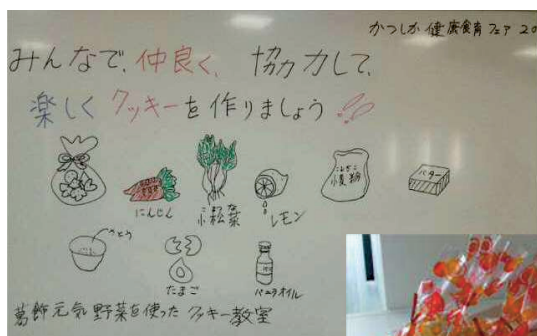 かつしか健康食育フェア 20
みんなで、仲良く、協力して、
楽しくクッキーを作りましょう!!
にんじん
こまつな
小松菜
レモン
こむぎこ
小麦粉
バター
さとう
たまご
バニラオイル
葛飾元気野菜を使ったクッキー教室